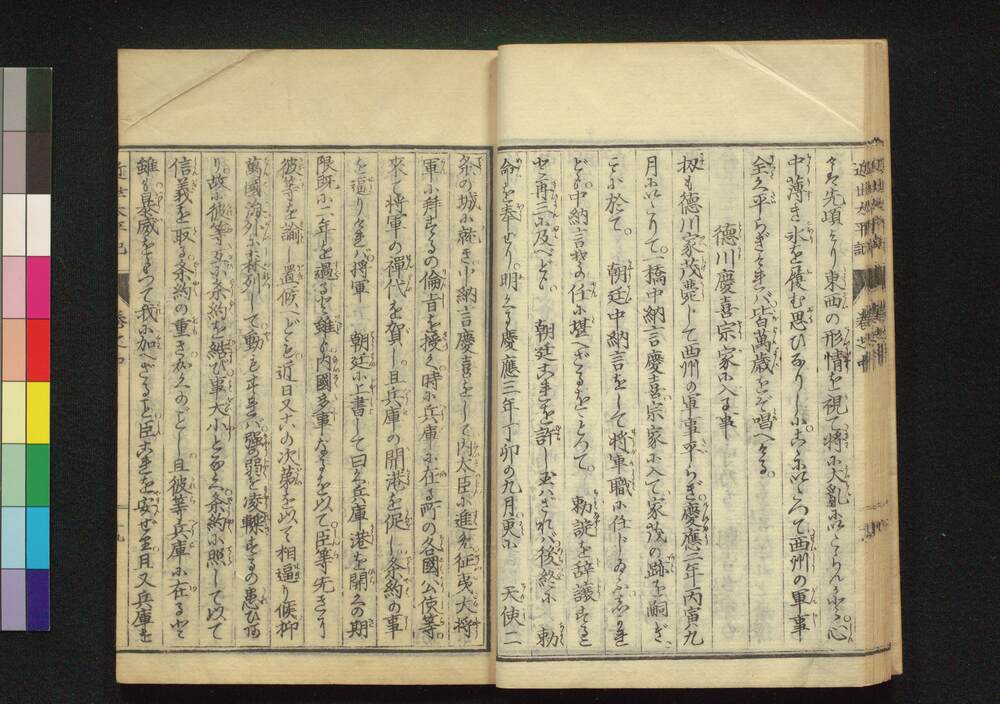 近世太平記 巻之四
々々先頃より東西の形情を視て将に大亂に至らんかと心
中薄き氷を履む思ひなりしにこゝに至つて西州の軍事
全く平らぎければ皆萬歳をぞ唱へける
徳川慶喜宗家に入る事
扨も徳川家茂薨じて西州の軍事平らぎ慶應二年丙寅九
月に至りて一橋中納言慶喜宗家に入て家茂の跡を嗣ぎ
こゝに於て 朝廷中納言をして将軍職に任じ
ども中納言其の任に堪へざるをもつて 勅諚を辞譲すること
せ再三に及べども 朝廷これを許し玉はざれバ後終に 勅
命を奉せり明くる慶應三年丁卯の九月更に 天使二
条の城に就き中納言慶喜をして内大臣に進め征夷大将
軍に拜するの倫旨を授く時に兵庫に在る所の各國公使等
来て将軍の禪代を賀し且兵庫の開港を促し条約の事
を逼りければ将軍 朝廷に上書して曰く兵庫港を開くの期
限既に二年を過ると雖ども内國多事なるを以て臣等先きに
彼等を諭し置候へども近日又々の次第を以て相逼り候抑
萬國海外に森列して動もすれば強の弱を凌轢するの患ひあ
り故に彼等互に条約を結び事大小となく条約に照して以て
信義を取る条約の重きかくのごとし且彼等兵庫に在ると
雖も暴威をもつて我に加へざると臣これを安ぜず且又兵庫を
近世太平記 巻之四